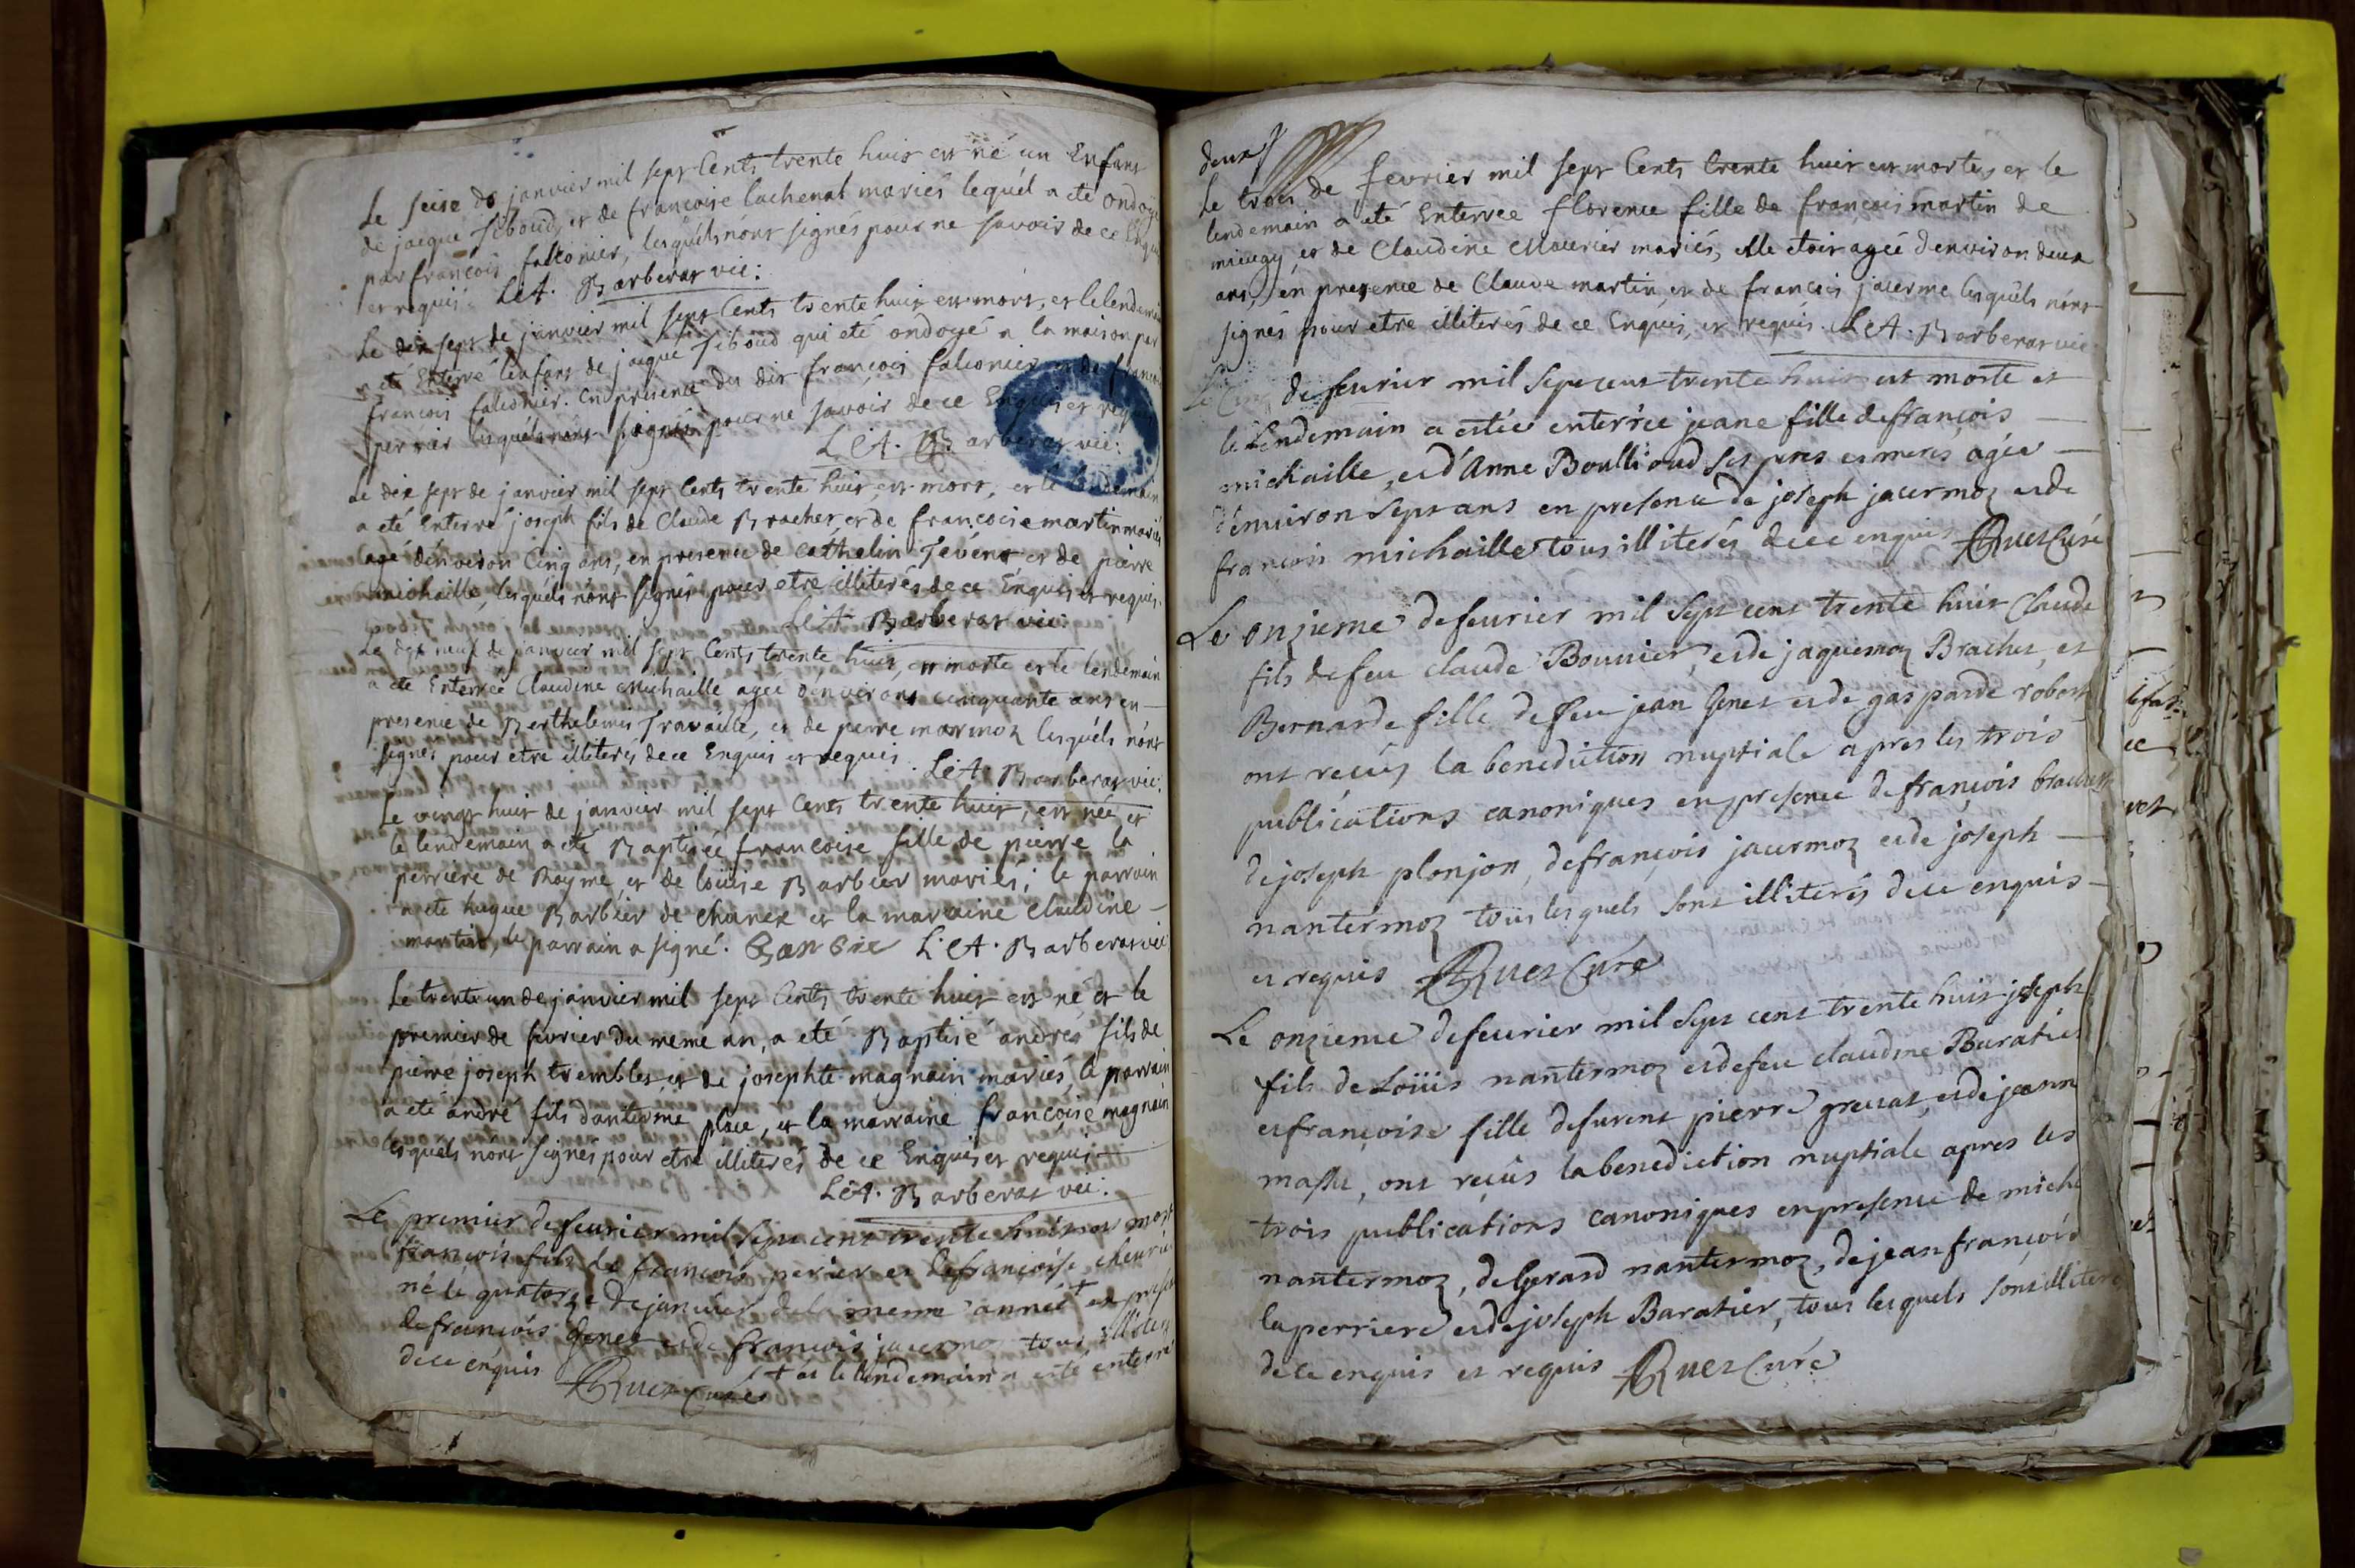 Le seise de janvier mil sept Cents trente huit est né un Enfant
de jacque Tiboud, et de francoise lachenal mariés lequél a eté ondoyé
par francois falconier, lesquéls n'ónt signés pour ne savoir de ce Enquis
et requis. LeA. Barberat vic:
Le dix sept de janvier mil sept Cents trente huit est mort, et le lendemain
a eté Enterré l'enfant de jaque Tiboud qui eté ondoyé a la maison par
francois falconier. En presence du dit françois falconier et de francois
perrier lesquéls nónt signés pour ne savoir de ce Enquis et requis
LeA. Barberat vic:
Le dix sept de janvier mil sept Cents trente huit est mort, et le lendemain
a eté Enterré joseph fils de Claude Brachet, et de francoise martin mariés
agé d'environ Cinq ans, en presence de Cathelin Tevént et de pierre
michaille, lesquéls nónt signés pour etre illiterés de ce Enquis et requis.
LeA. Barberat vic:
Le dix neuf de janvier mil sept Cents trente huit, est morte et le lendemain
a eté Enterrée Claudine Michaille agée d'environt cinquante ans en
presence de Berthelemis Travaille, et de pierre marmoz lesquéls nónt
signés pour etre illiterés de ce Enquis et requis. LeA. Barberat vic:
Le vingt huit de janvier mil sept Cents trente huit, est née, et
le lendemain a eté Baptisée francoise fille de pierre la
perriere de Rayme, et de loüise Barbier mariés; le parrain
a eté hugue Barbier de chanex et la marraine Claudine
martin, le parrain a signé. LeA. Barberat vic
Le trente un de janvier mil sept Cents trente huit est né et le
premier de fevrier du meme an, a eté Baptisé andrés fils de
pierre joseph tremblet, et de josephte magnain mariés, le parrain
a eté andré fils d'anterme place, et la marraine françoise magnain
lesquels nónt signés pour etre illiterés de ce Enquis et requis
LeA. Barberat vic:
Le premier de feurier mil sept cent trente huit est mort
françois fils de françois perier et de françoise cheurier
né le quatorze de janvier de la meme année + en presence
de françois Genet et de françois jacermoz tous illiteres
de ce enquis + et le lendemain a esté enterré
Ruet Curé
deux
Le trois de fevrier mil sept Cents trente huit est morte, et le
lendemain a eté Enterrée florence fille de francois martin de
mieugy, et de Claudine Maurier mariés, elle etoit agée d'environ deux
ans, en presence de Claude martin, et de francois jacerme lesquéls nónt
signés pour etre illiterés de ce Enquis, et requis. LeA. Barberat vic
Le Cinq de feurier mil sept cent trente huit est morte et
le Lendemain a estée enterrée jeane fille de françois
michaille, et d'Anne Boullioud ses peres et meres agée
d'enuiron sept ans en presence de joseph jacermoz et de
françois michaille tous illiterés de ce enquis Ruet Curé
Le onzieme de feurier mil sept cent trente huit Claude
fils de feu claude Bouuier, et de jaquemoz Brachet, et
Bernarde fille de feu jean Genet et de gasparde robert
ont reçus la benediction nuptiale apres les trois
publications canoniques en presence de françois brachet
de joseph plonjon, de françois jacermoz et de joseph
nantermoz tous lesquels sont illiterés de ce enquis
et requis Ruet Curé
Le onzieme de feurier mil sept cent trente huit joseph
fils de Loüis nantermoz et de feu claudine Baratier
et françoise fille de furent pierre grenat, et de jeann
masse, ont reçus la benediction nuptiale apres les
trois publications canoniques en presence de miche
nantermoz, de Gerard nantermoz, de jean françois
laperriere et de joseph Baratier, tous lesquels sont illitere
de ce enquis et requis Ruet Curé